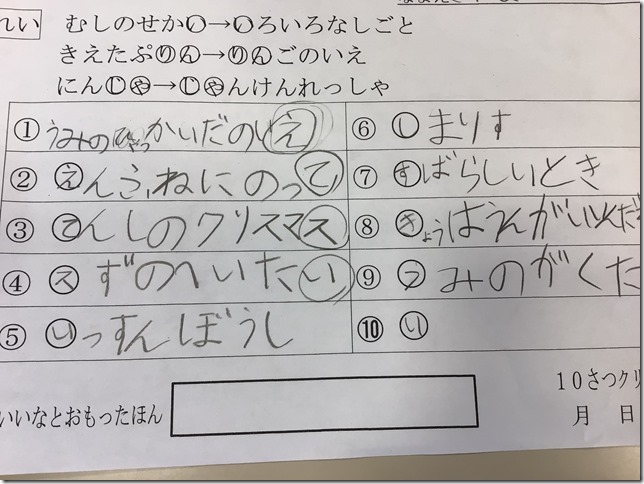 れい むしのせか㋑→㋑ろいろなしごと
きえたぷりん→りんごのいえ
にんじゃ→じゃんけんれっしゃ
① うみのひゃっかいだのいえ
② えんふねにのって
③ てんしのクリスマス
④ スずのへいたい
⑤ いっすんぼうし
⑥ しまりす
⑦ すばらしいとき
⑧ きょうは
⑨ うみのがくた
⑩ い
いいなとおもったほん
10さつクリ
月 日